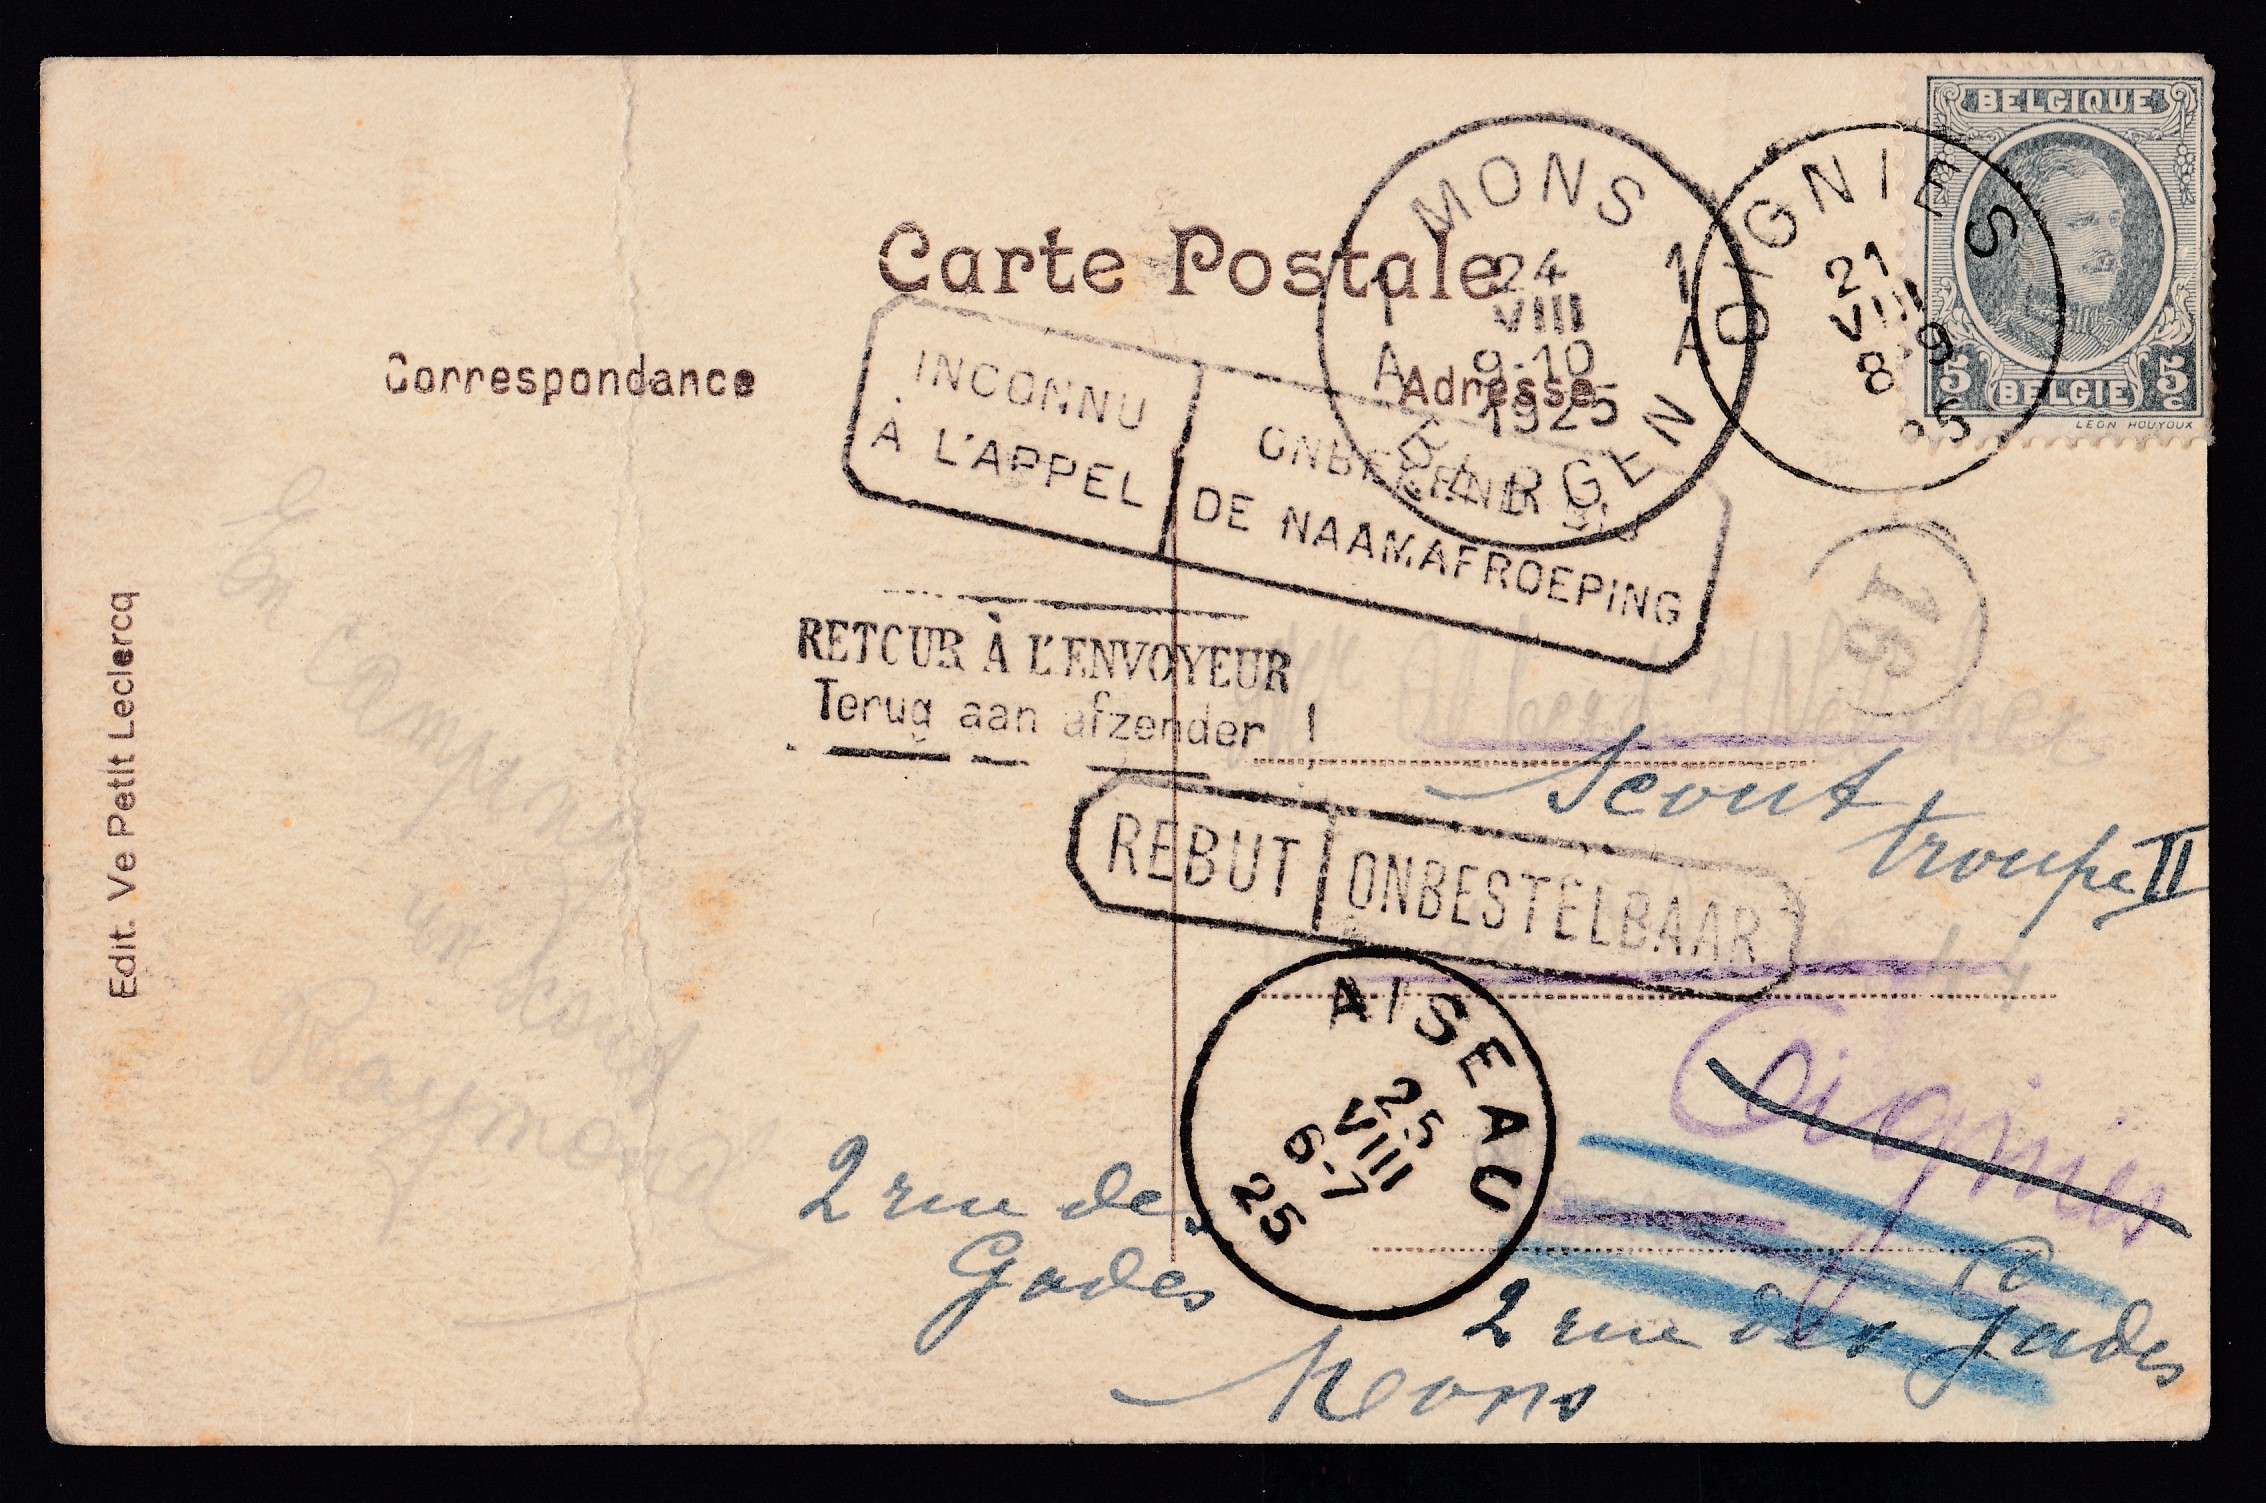 BELGIQUE
5c BELGIE 5c
LEON HOUYOUX
OIGNIES
21
VIII
8 9
25
MONS 1
1 24
VIII
A 9-10 A
1925
BERGEN
Carte Postale
Correspondance
Adresse
INCONNU
À L'APPEL
ONBEKEND BIJ
DE NAAMAFROEPING
RETOUR À L'ENVOYEUR
Terug aan afzender !
16
Edit. Ve Petit Leclercq
En camping
un scout
Raymond
Mr Albert
Scout
troupe II
REBUT
ONBESTELBAAR
44
AISEAU
25
VIII
6-7
25
Oignies
2 rue des
Gades
2 rue des Gades
Mons